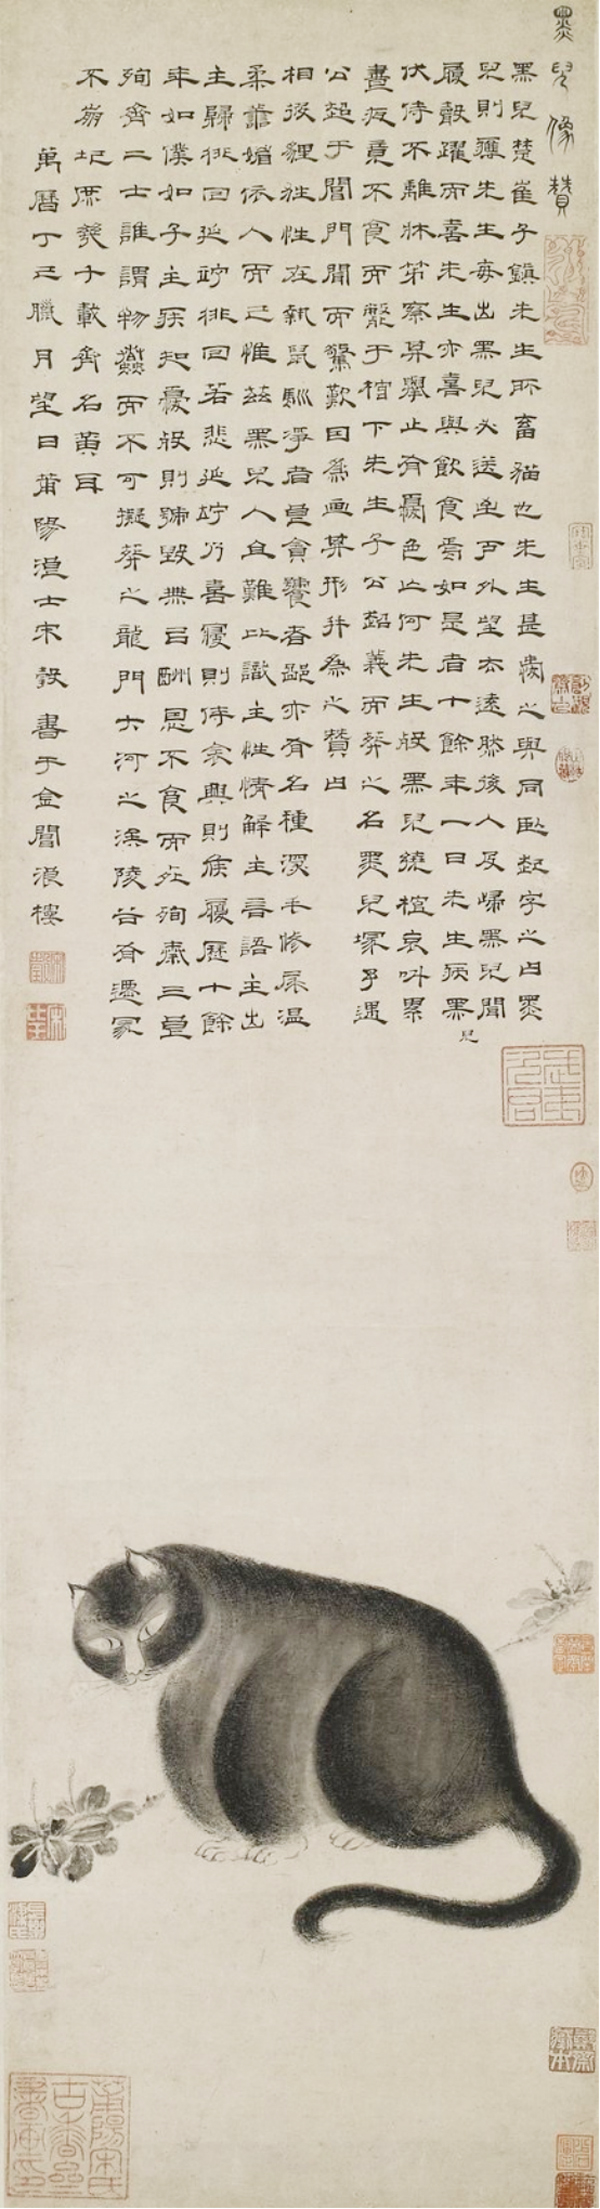 黑兒像贊
黑兒楚崔子鎮先生所畜猫也先生甚憐之與同臥起字之曰黑
兒則應先生每出黑兒必送至戶外望太遠然後入及歸黑兒聞
履聲躍而喜先生亦喜與飲食焉如是者十餘年一日先生病黑兒
伏侍不離牀笫察其舉止有憂色亡何先生歿黑兒繞棺哀叫累
晝夜竟不食而斃于棺下先生子公超義而葬之名黑兒塚予遇
公超于閶門聞而驚歎因為畫其形并為之贊曰
相彼貍狌性在執鼠馴淨者皆貪饕者鄙亦有名種深毛修尾溫
柔媚依人而已惟茲黑兒人且難比識主性情解主言語主出
主歸徘徊延竚徘徊若悲延竚乃喜寢則侍衾興則候履歷十餘
年如僕如子主疾知憂歿則號毀無以酬恩不食而死殉秦三良
殉齊二士誰謂物微而不可擬葬之龍門大河之涘陵谷有遷冢
不崩圮庶幾千載齊名黃耳
萬曆丁巳臘月望日莆陽漁士宋瑴書于金閶浪樓